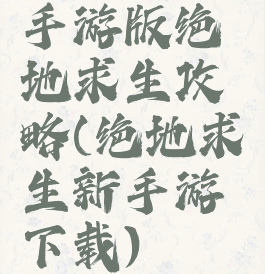 手游版绝
地求生攻
略(绝地求
生新手游
下载)